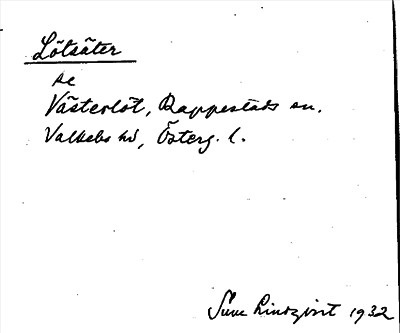 Lötsäter
se
Västerlöt, Rappestads sn.
Valkebo hd, Österg. l.
Sune Lindqvist 1932